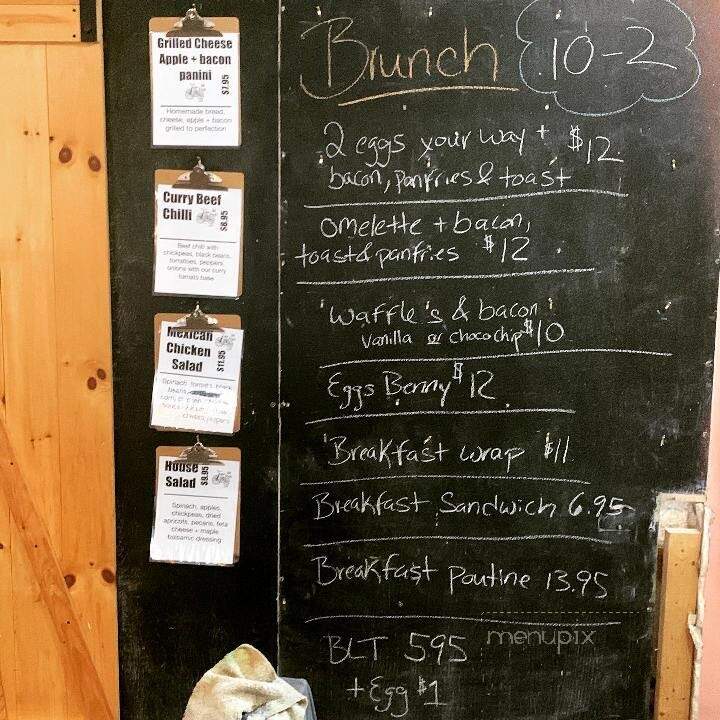 Grilled Cheese
Apple + bacon
panini
$7.95
Homemade bread,
cheese, apple + bacon
grilled to perfection
Curry Beef
Chilli
$8.95
Beef chili with
chickpeas, black beans,
tomatoes, peppers,
onions with our curry
tomato base
Mexican
Chicken
Salad
$11.95
Spinach, tomato, black
beans,
House
Salad
$9.95
Spinach, apples,
chickpeas, dried
apricots, pecans, feta
cheese + maple
balsamic dressing
Brunch 10-2
2 eggs your way + $12
bacon, panfries & toast
omelette + bacon,
toast & panfries $12
Waffle's & bacon
Vanilla or chocochip $10
Eggs Benny $12
Breakfast wrap $11
Breakfast Sandwich 6.95
Breakfast Poutine 13.95
BLT 595
+ Egg $1
menupix